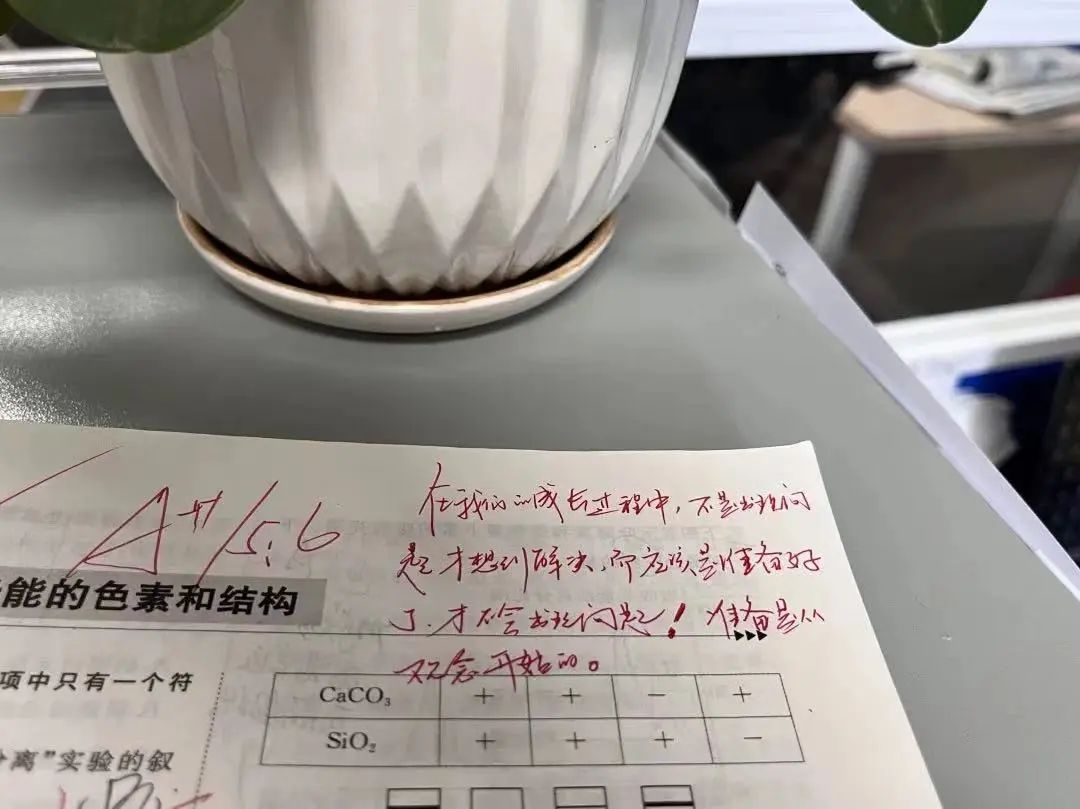 A++/5.6
在我们的成长过程中，不是出现问
题才想到解决，而应该是准备好
了，才不会出现问题！准备是从
观念开始的。
能的色素和结构
项中只有一个符
离”实验的叙
CaCO₃ + + − +
SiO₂ + + + −